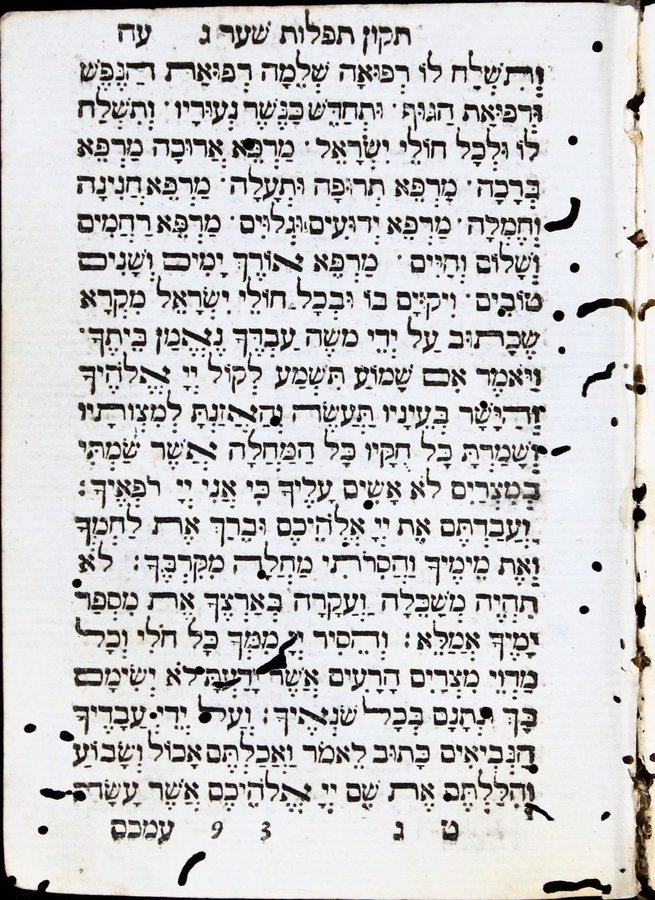 תקון תפלות שער ג עח
וְתִשְׁלַח לוֹ רְפוּאָה שְׁלֵמָה רְפוּאַת הַנֶּפֶשׁ
וּרְפוּאַת הַגּוּף · וּתְחַדֵּשׁ כַּנֶּשֶׁר נְעוּרָיו · וְתִשְׁלַח
לוֹ וּלְכָל חוֹלֵי יִשְׂרָאֵל · מַרְפֵּא אֲרוּכָה מַרְפֵּא
בְּרָכָה · מַרְפֵּא תְּרוּפָה וּתְעָלָה · מַרְפֵּא חֲנִינָה
וְחֶמְלָה · מַרְפֵּא יְדוּעִים וּגְלוּיִם · מַרְפֵּא רַחֲמִים
וְשָׁלוֹם וְחַיִּים · מַרְפֵּא אוֹרֶךְ יָמִים וְשָׁנִים
טוֹבִים · וִיקֻיָּים בּוֹ וּבְכָל חוֹלֵי יִשְׂרָאֵל מִקְרָא
שֶׁכָּתוּב עַל יְדֵי משֶׁה עַבְדֶּךָ נֶאֱמַן בֵּיתֶךָ ·
וַיֹּאמֶר אִם שָׁמוֹעַ תִּשְׁמַע לְקוֹל יְיָ אֱלֹהֶיךָ
וְהַיָּשָׁר בְּעֵינָיו תַּעֲשֶׂה וְהַאֲזַנְתָּ לְמִצְוֹתָיו
וְשָׁמַרְתָּ כָּל חֻקָּיו כָּל הַמַּחֲלָה אֲשֶׁר שַׂמְתִּי
בְמִצְרַיִם לֹא אָשִׂים עָלֶיךָ כִּי אֲנִי יְיָ רֹפְאֶיךָ :
וַעֲבַדְתֶּם אֶת יְיָ אֱלֹהֵיכֶם וּבֵרַךְ אֶת לַחְמְךָ
וְאֶת מֵימֶיךָ וַהֲסִרֹתִי מַחֲלָה מִקִּרְבֶּךָ : לֹא
תִהְיֶה מְשַׁכֵּלָה וַעֲקָרָה בְּאַרְצֶךָ אֶת מִסְפַּר
יָמֶיךָ אֲמַלֵּא : וְהֵסִיר יְיָ מִמְּךָ כָּל חֹלִי וְכָל
מַדְוֵי מִצְרַיִם הָרָעִים אֲשֶׁר יָדַעְתָּ לֹא יְשִׂימָם
בָּךְ וּנְתָנָם בְּכָל שֹׂנְאֶיךָ : וְעַל יְדֵי עֲבָדֶיךָ
הַנְּבִיאִים כָּתוּב לֵאמֹר וַאֲכַלְתֶּם אָכוֹל וְשָׂבוֹעַ
וְהִלַּלְתֶּם אֶת שֵׁם יְיָ אֱלֹהֵיכֶם אֲשֶׁר עָשָׂה
ט ג 3 9 עמכם